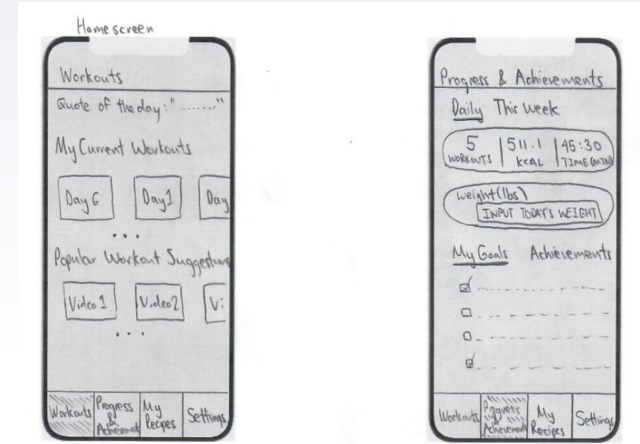 Homescreen
Workouts
Quote of the day: "........"
My Current Workouts
Day 6 Day 1 Day
...
Popular Workout Suggestions
Video 1 Video 2 Vi
...
Workouts Progress & Achievement My Recipes Settings
Progress & Achievements
Daily This Week
5 511.1 45:30
WORKOUTS KCAL TIME(MIN)
weight(lbs)
INPUT TODAY'S WEIGHT
My Goals Achievements
Workouts Progress & Achievement My Recipes Settings